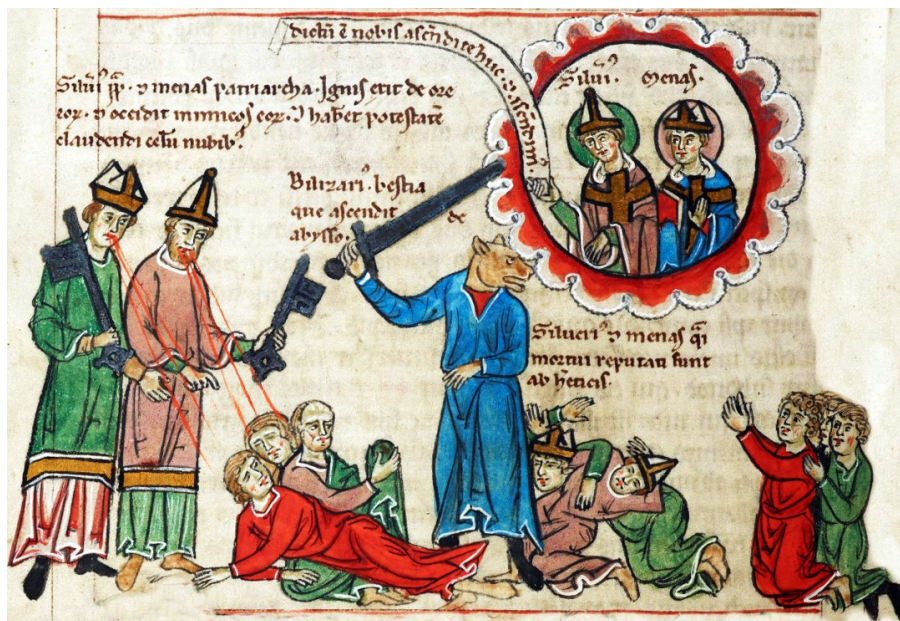 dictū ē nobis ascēdite huc · ⁊ ascēdim᷒ ·
Siluī᷒ · menas ·
Siluī᷒ pp̄ · ⁊ menas patriarcha · Ignis exit de ore
eoꝝ · ⁊ occidit inimicos eoꝝ · habēt potestatē
claudendi celū nubib᷒
Bilizari᷒ · bestia
que ascendit de
abysso ·
Silueri᷒ ⁊ menas q̄i
mortui reputati sunt
ab h̄eticis ·